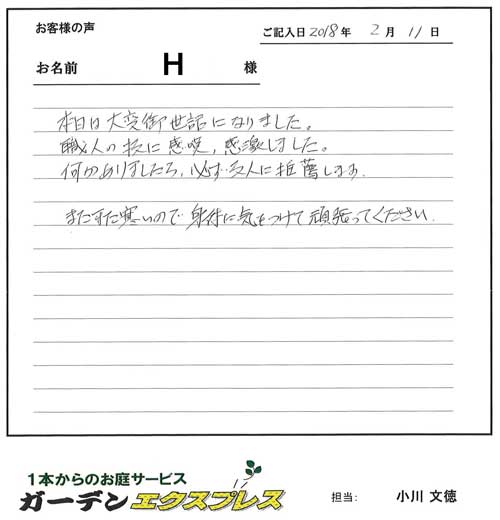 お客様の声
ご記入日 2018年 2月 11日
お名前 H 様
本日は大変御世話になりました。
職人の技に感嘆,感激しました。
何かありましたら、必ず友人に推薦します.
まだまだ寒いので身体に気をつけて頑張ってください.
1本からのお庭サービス
ガーデンエクスプレス
担当: 小川 文徳